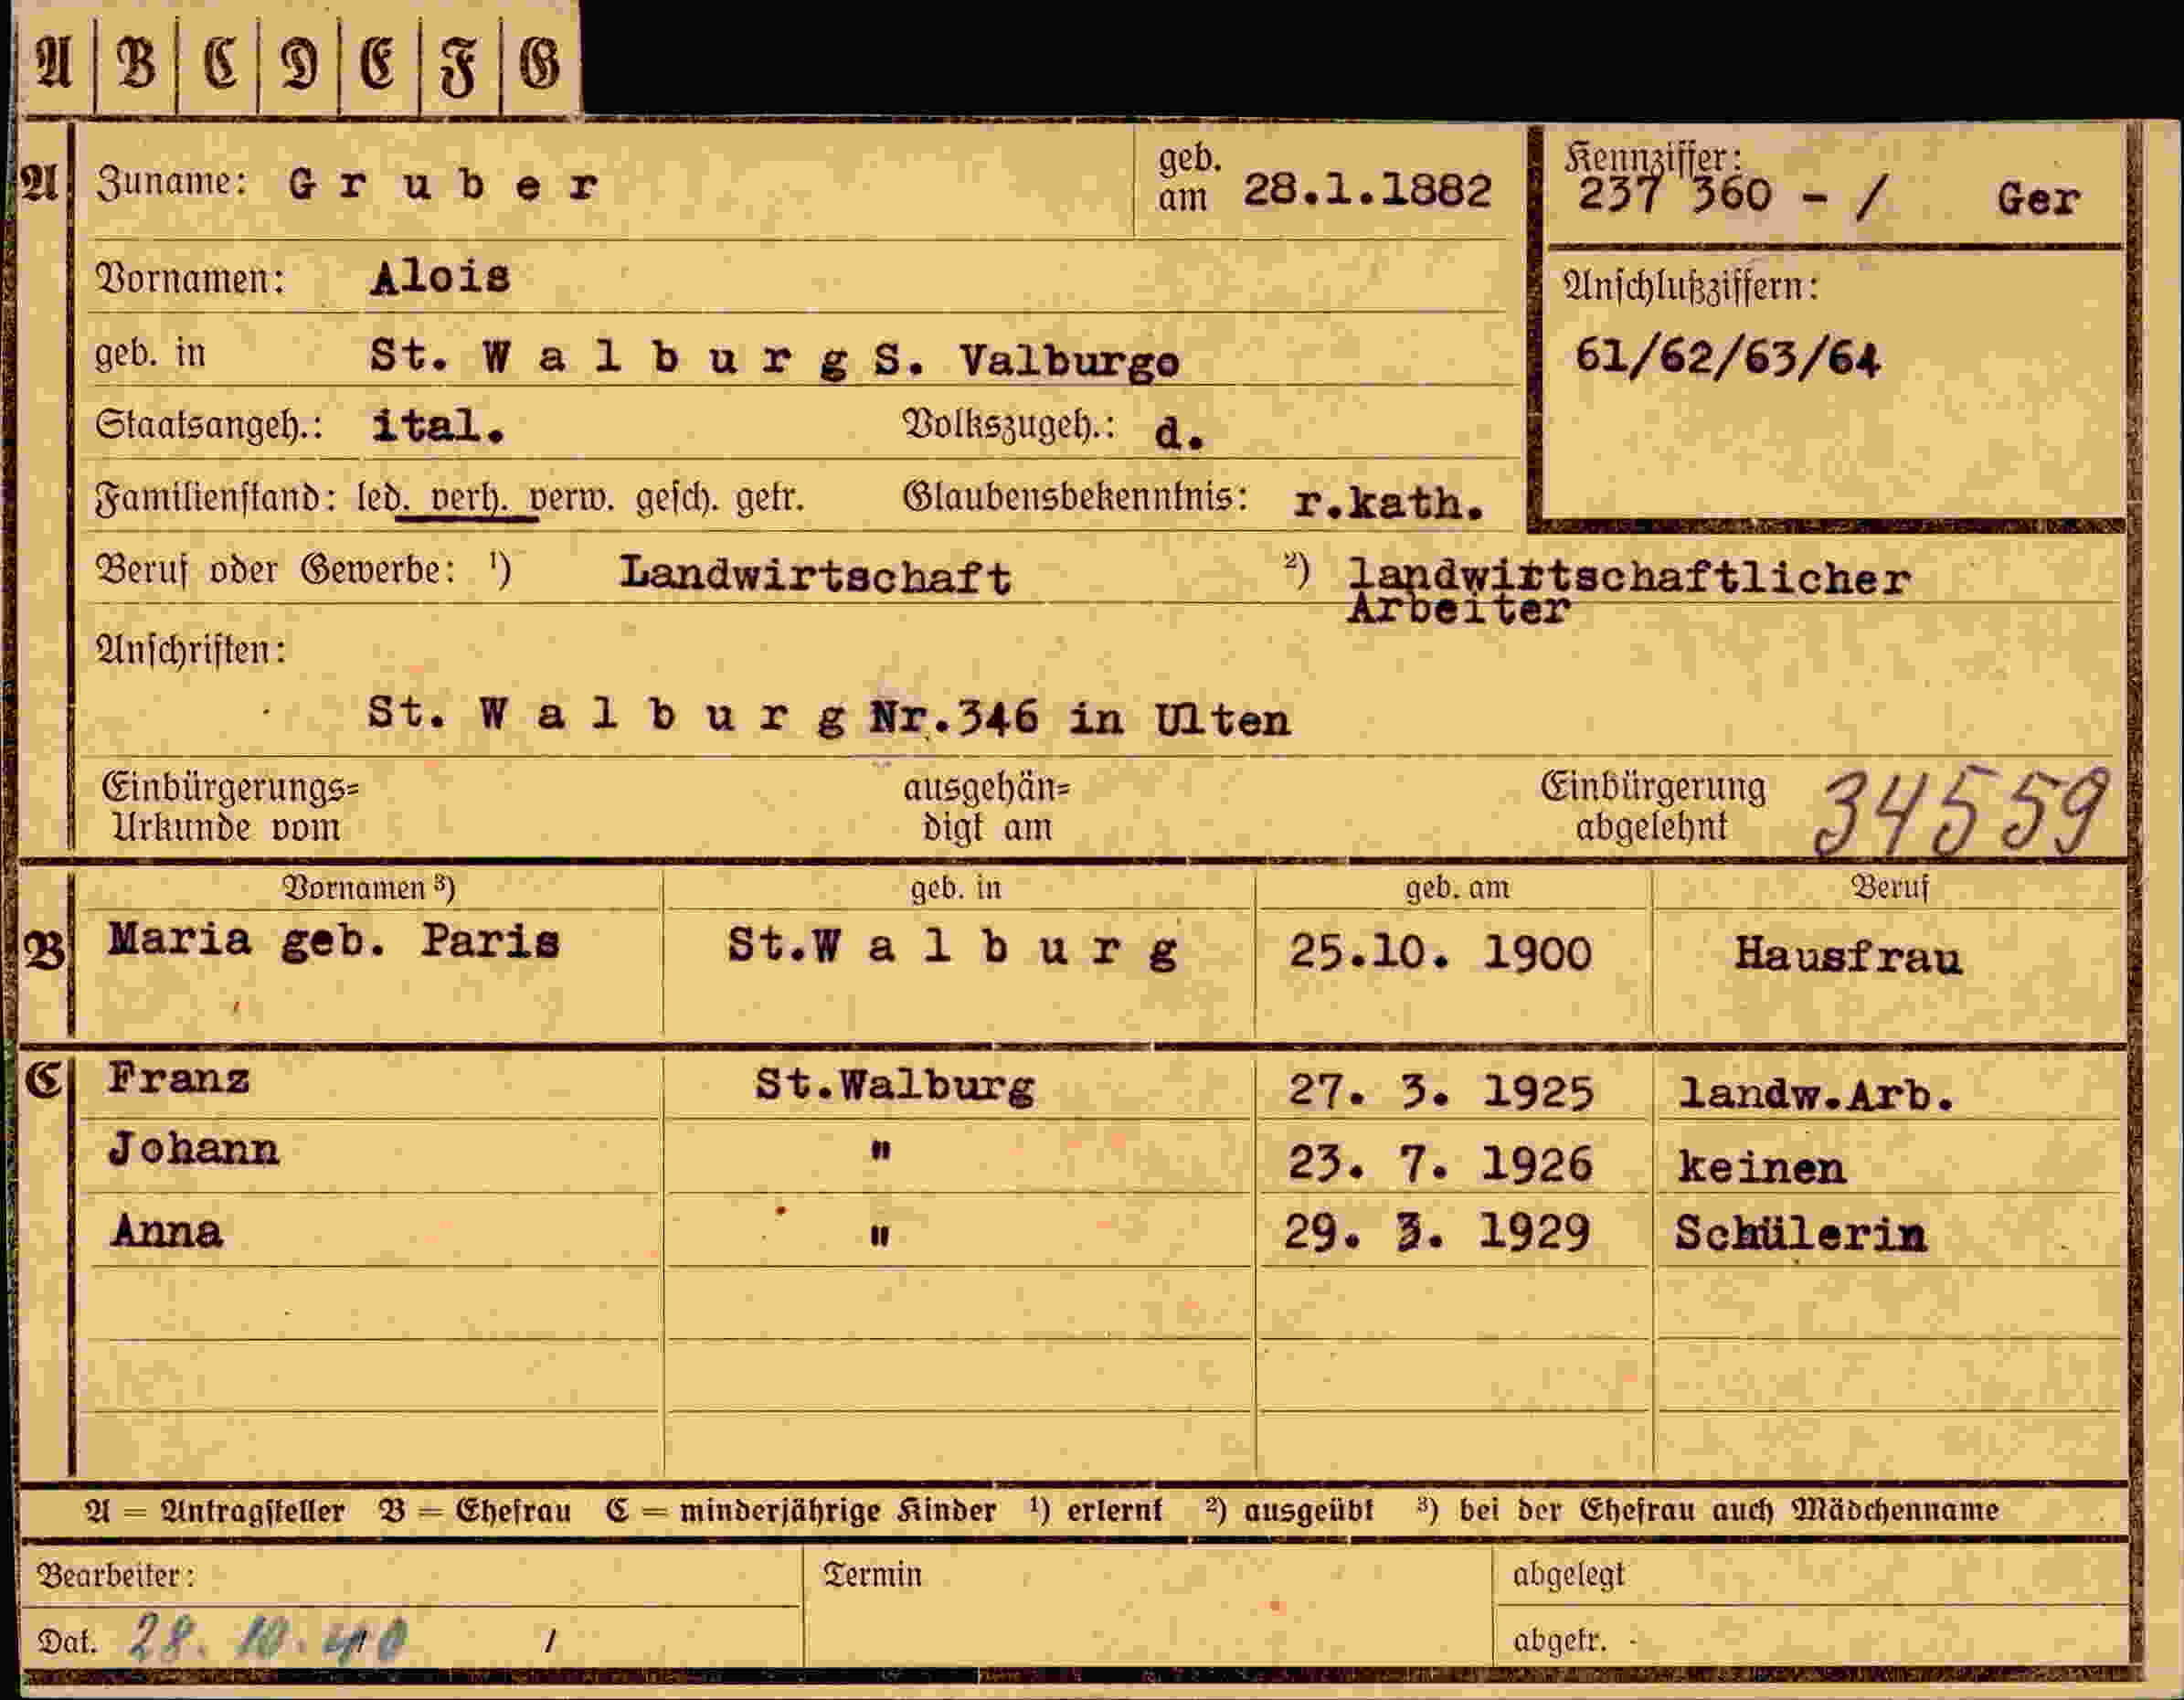 A B C D E F G
A Zuname: G r u b e r geb. am 28.1.1882 Kennziffer: 237 360 - / Ger
Vornamen: Alois Anschlußziffern:
geb. in St. W a l b u r g S. Valburgo 61/62/63/64
Staatsangeh.: ital. Volkszugeh.: d.
Familienstand: led. verh. verw. gesch. getr. Glaubensbekenntnis: r.kath.
Beruf oder Gewerbe: ¹) Landwirtschaft ²) landwirtschaftlicher
Arbeiter
Anschriften:
St. W a l b u r g Nr.346 in Ulten
Einbürgerungs= ausgehän= Einbürgerung 34559
Urkunde vom digt am abgelehnt
Vornamen ³) geb. in geb. am Beruf
B Maria geb. Paris St.W a l b u r g 25.10. 1900 Hausfrau
C Franz St.Walburg 27. 3. 1925 landw.Arb.
Johann " 23. 7. 1926 keinen
Anna " 29. 3. 1929 Schülerin
A = Antragsteller B = Ehefrau C = minderjährige Kinder ¹) erlernt ²) ausgeübt ³) bei der Ehefrau auch Mädchenname
Bearbeiter: Termin abgelegt
Dat. 28. 10. 40 / abgetr. -